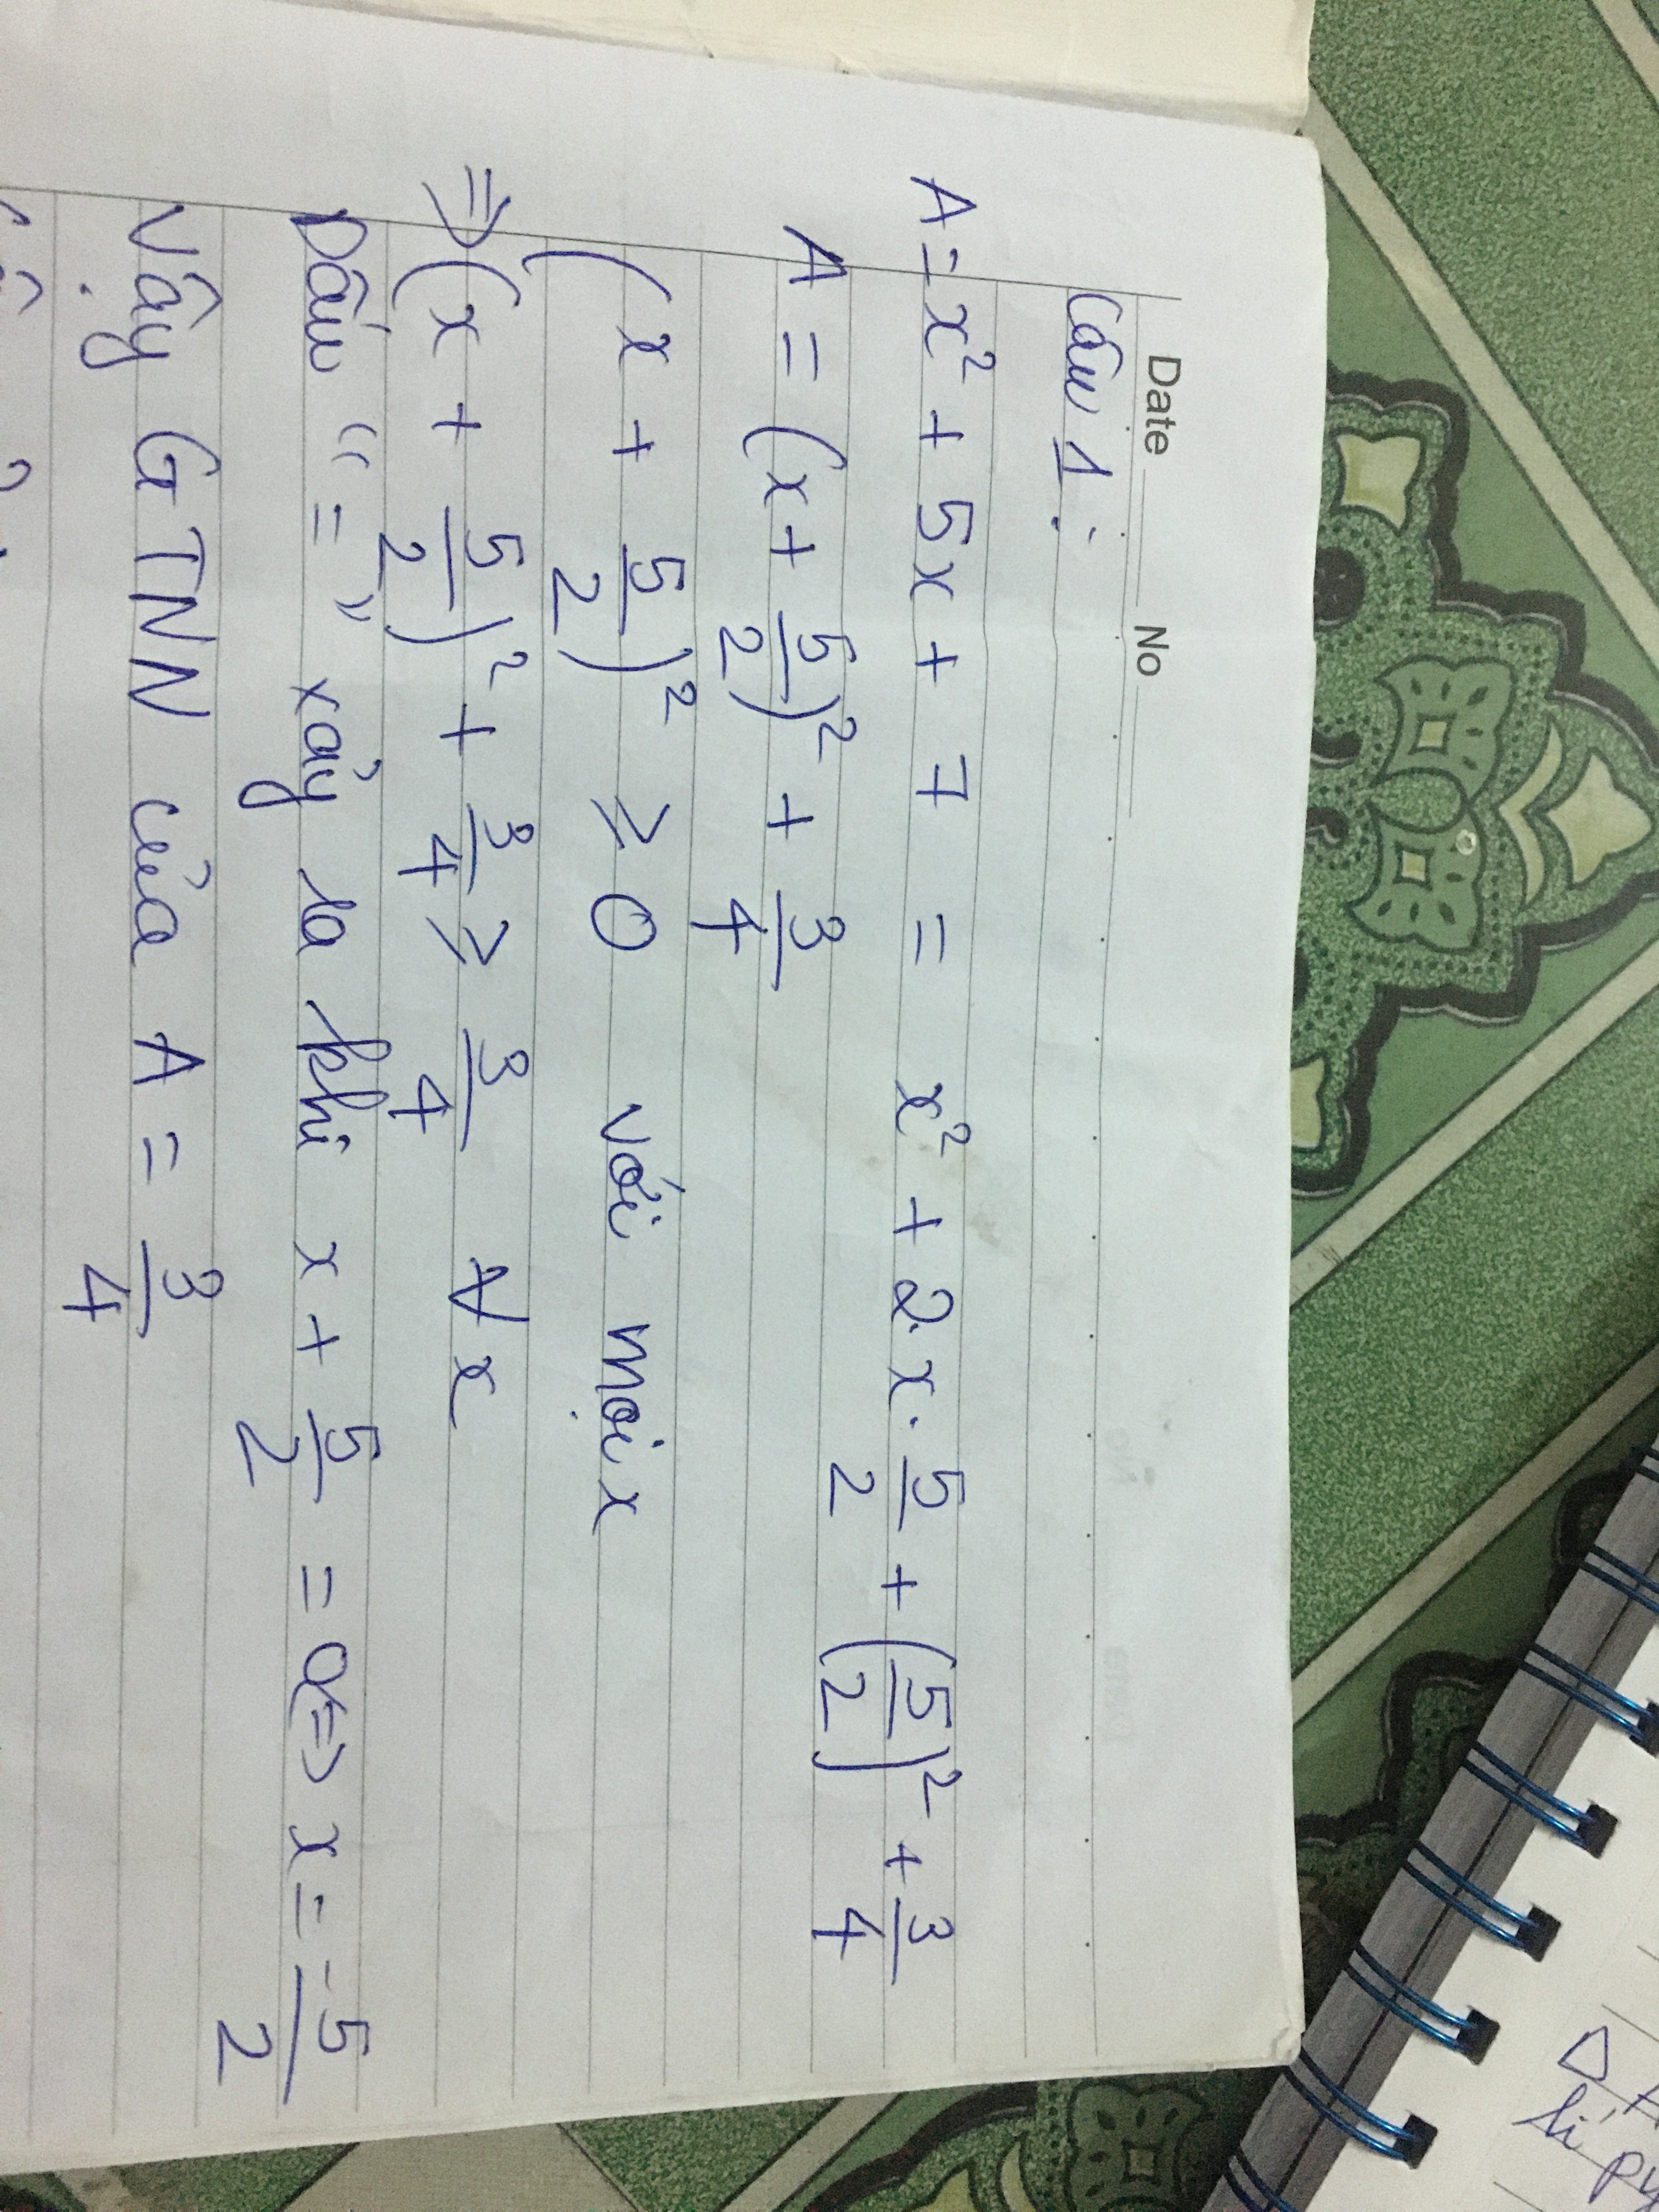 Date No
Câu 1:
A = x² + 5x + 7 = x² + 2.x.5/2 + (5/2)² + 3/4
A = (x + 5/2)² + 3/4
(x + 5/2)² ≥ 0 với mọi x
⇒ (x + 5/2)² + 3/4 ≥ 3/4 ∀x
Dấu "=" xảy ra khi x + 5/2 = 0 ⇔ x = -5/2
Vậy GTNN của A = 3/4